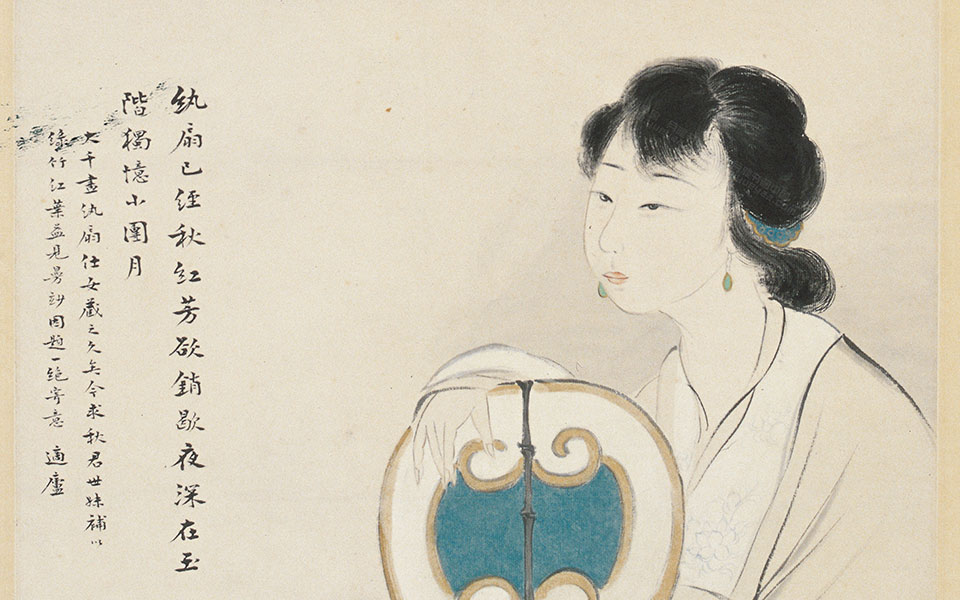 紈扇已經秋紅芳欲銷歇夜深在玉
階獨憶小團月
大千畫紈扇仕女藏之久矣今求秋君世妹補以
綠竹江葉益見曼妙因題一絕寄意 適廬